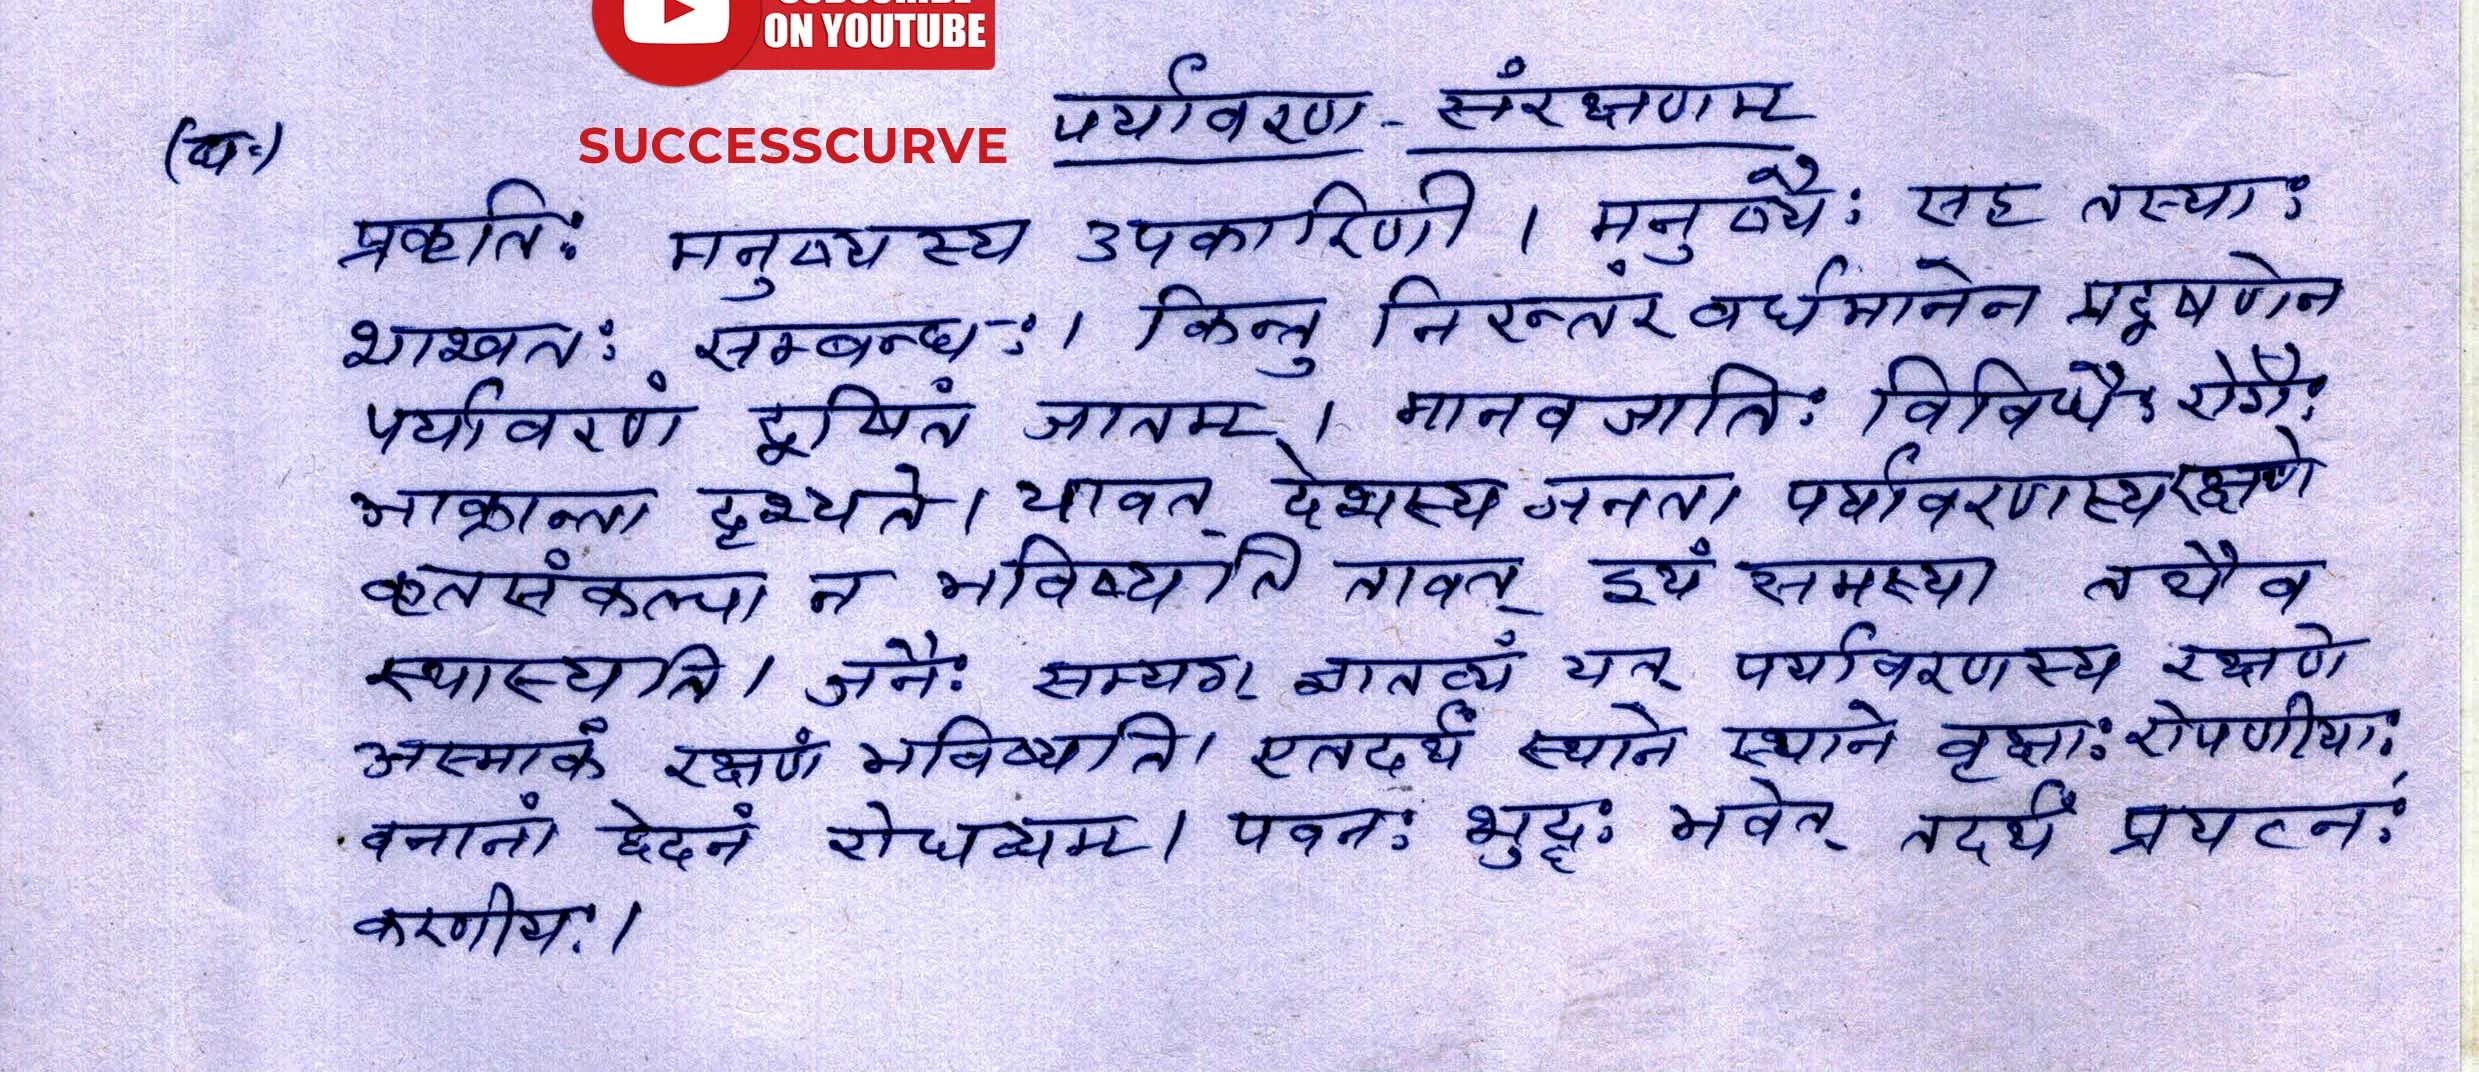 ON YOUTUBE
SUCCESSCURVE
पर्यावरण - संरक्षणम्
प्रकृतिः मनुष्यस्य उपकारिणी । मनुष्यैः सह तस्याः
शाश्वतः सम्बन्धः । किन्तु निरन्तंर वर्धमानेन प्रदूषणेन
पर्यावरणं दूषितं जातम् । मानवजातिः विविधैः रोगैः
आक्रान्ता दृश्यते । यावत् देशस्य जनता पर्यावरणस्य रक्षणे
कृतसंकल्पा न भविष्यति तावत् इयं समस्या तथैव
स्थास्यति । जनैः सम्यग् ज्ञातव्यं यत् पर्यावरणस्य रक्षणे
अस्माकं रक्षणं भविष्यति । एतदर्थं स्थाने स्थाने वृक्षाः रोपणीयाः,
वनानां छेदनं रोधव्यम् । पवनः शुद्धः भवेत् तदर्थं प्रयत्नः
करणीयः ।